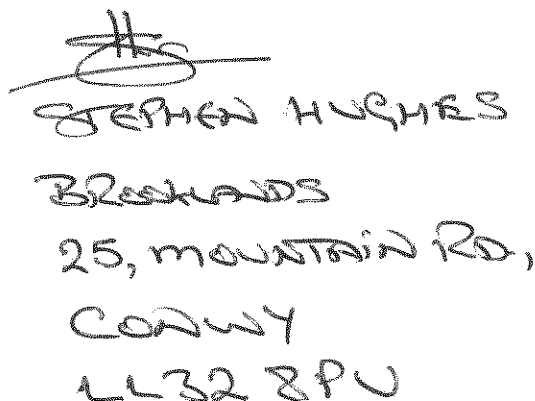 STEPHEN HUGHES
BROOKLANDS
25, MOUNTAIN RD,
CONWY
LL32 8PU